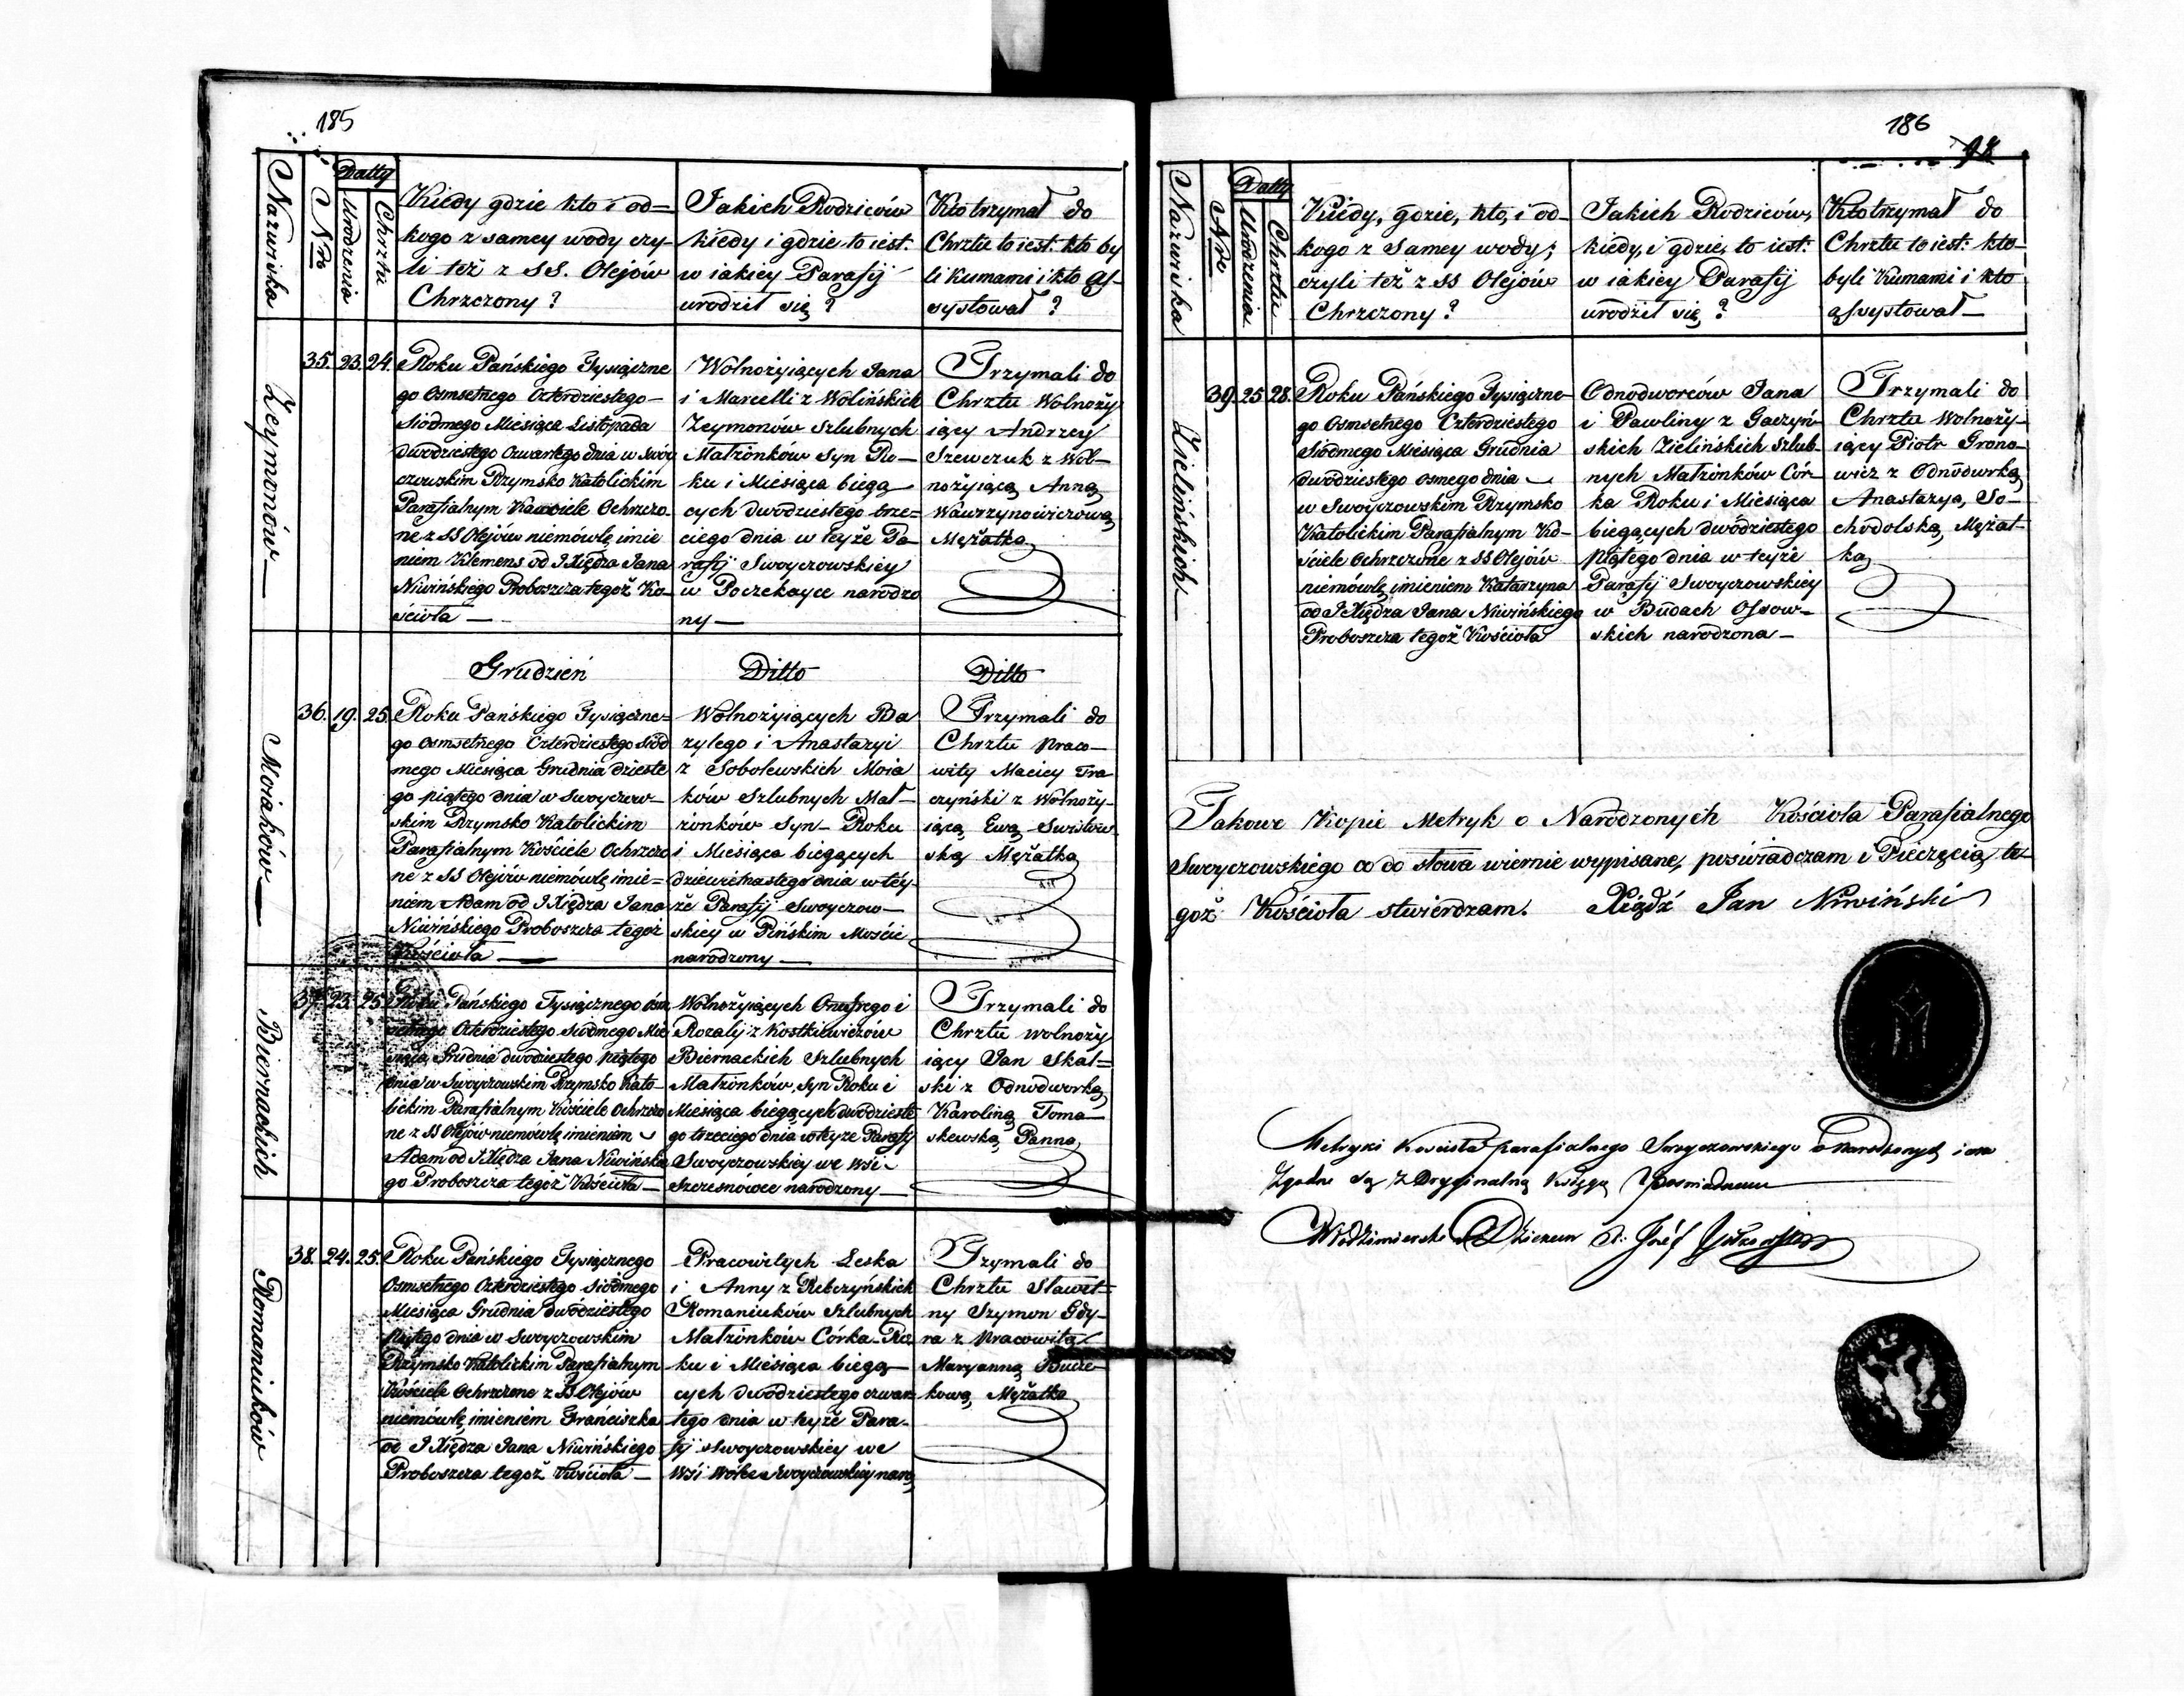 185
Nazwiska
Nro
Datty
Urodzenia
Chrztu
Kiedy gdzie kto i od-
kogo z samey wody czy-
li też z SS. Olejów
Chrzczony?
Jakich Rodziców
kiedy i gdzie to iest:
w iakiey Parafij
urodził się?
Kto trzymał do
Chrztu to iest: kto by
li Kumami i kto as-
systował?
Zeymonów
35. 23. 24.
Roku Pańskiego Tysiączne
go Osmsetnego Czterdziestego
Siódmego Miesiąca Listopada
dwódziestego Czwartego dnia w Swoy
czowskim Rzymsko Katolickim
Parafialnym Kościele Ochrzczo
ne z SS Olejów niemówlę imie
niem Klemens od JXiędza Jana
Niwińskiego Proboszcza tegoż Ko-
ścioła
Wolnożyiących Jana
i Marcelli z Wolińskich
Zeymonów Szlubnych
Małżonków Syn Ro-
ku i Miesiąca biegą
cych dwódziestego trze-
ciego dnia w teyże Pa-
rafij Swoyczowskiey
w Poczekayce narodzo
ny
Trzymali do
Chrztu Wolnoży
iący Andrzey
Szewczuk z Wol-
nożyiącą Anną
Wawrzynowiczową
Mężatką
Grudzień
Ditto
Ditto
Moiaków
36. 19. 25.
Roku Pańskiego Tysiączne-
go Osmsetnego Czterdziestego Siód
mego Miesiąca Grudnia dzieste
go piątego dnia w Swoyczow-
skim Rzymsko Katolickim
Parafialnym Kościele Ochrzczo
ne z SS Olejów niemówlę imie-
niem Adam od JXiędza Jana
Niwińskiego Proboszcza tegoż
Kościoła
Wolnożyiących Ba
zylego i Anastazyi
z Sobolewskich Moia
ków Szlubnych Mał-
żonków Syn Roku
i Miesiąca biegących
dziewiętnastego dnia w téy-
że Parafij Swoyczow-
skiey w Pińskim Moście
narodzony
Trzymali do
Chrztu Praco-
wity Maciey Tra
czyński z Wolnoży-
iącą Ewą
ską Mężatką
Biernackich
37. 23. 25.
Roku Pańskiego Tysiącznego Osm
setnego Czterdziestego Siódmego Mie
siąca Grudnia dwódziestego piątego
dnia w Swoyczowskim Rzymsko Kato-
lickim Parafialnym Kościele Ochrzczo
ne z SS Olejów niemówlę imieniem
Adam od JXiędza Jana Niwińskie
go Proboszcza tegoż Kościoła
Wolnożyiących Onufrego i
Rozalij z Kostkiewiczów
Biernackich Szlubnych
Małżonków, Syn Roku i
Miesiąca biegących dwódzieste
go trzeciego dnia w teyże Parafij
Swoyczowskiey we Wsi
Szczesnówce narodzony
Trzymali do
Chrztu wolnoży
iący Jan Skal-
ski z Odnodworką
Karoliną Toma-
szewską Panną
Romaniuków
38. 24. 25.
Roku Pańskiego Tysiącznego
Osmsetnego Czterdziestego Siódmego
Miesiąca Grudnia dwódziestego
Piątego dnia w Swoyczowskim
Rzymsko Katolickim Parafialnym
Kościele Ochrzczone z SS Olejów
niemówlę imieniem Franciszka
od JXiędza Jana Niwińskiego
Proboszcza tegoż Kościoła
Pracowitych Leska
i Anny z Rebczyńskich
Romaniuków Szlubnych
Małżonków Córka Ro
ku i Miesiąca biegą-
cych dwódziestego czwar
tego dnia w teyże Para-
fij Swoyczowskiey we
Wsi Wólce Swoyczowskiey
Trzymali do
Chrztu Sławet-
ny Szymon Gdy-
ra z Pracowitą
Maryanną
kową Mężatką
186
Nazwiska
Nro
Datty
Urodzenia
Chrztu
Kiedy, gdzie, kto, i od-
kogo z Samey wody;
czyli też z SS Olejów
Chrzczony?
Jakich Rodziców,
kiedy, i gdzie, to iest:
w iakiey Parafij
urodził się?
Kto trzymał do
Chrztu to iest: kto-
byli Kumami i kto
assystował
Zielińskich
39. 25. 28.
Roku Pańskiego Tysiączne-
go Osmsetnego Czterdziestego
Siódmego Miesiąca Grudnia
dwódziestego osmego dnia
w Swoyczowskim Rzymsko
Katolickim Parafialnym Ko-
ściele Ochrzczone z SS Olejów
niemówlę imieniem Katarzyna
od JXiędza Jana Niwińskiego
Proboszcza tegoż Kościoła
Odnodworców Jana
i Pawliny z Gaczyń-
skich Zielińskich Szlub-
nych Małżonków Cór-
ka Roku i Miesiąca
biegących dwódziestego
Piątego dnia w teyże
Parafij Swoyczowskiey
w Budach Ossow-
skich narodzona
Trzymali do
Chrztu Wolnoży-
iący Piotr Grono-
wicz z Odnodworką
Anastazyą, So-
chodolską, Mężat-
ką
Takowe Kopie Metryk o Narodzonych Kościoła Parafialnego
Swoyczowskiego co do słowa wiernie wypisane, poświadczam i Pieczęcią te-
goż Kościoła stwierdzam. Xiądz Jan Niwiński
Metryki Kościoła parafialnego Swoyczowskiego o Narodzonych iako
Zgodne są z Oryginalną Księgą Poswiadczam
Włodzimierski Dziekan X. Józef